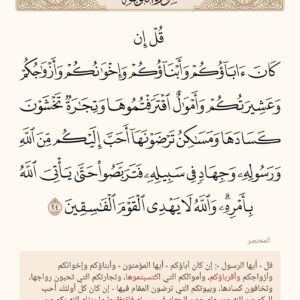 سُورَةُ التَّوْبَةِ
قُلْ إِن
كَانَ ءَابَآؤُكُمْ وَأَبْنَآؤُكُمْ وَإِخْوَٰنُكُمْ وَأَزْوَٰجُكُمْ
وَعَشِيرَتُكُمْ وَأَمْوَٰلٌ ٱقْتَرَفْتُمُوهَا وَتِجَٰرَةٌ تَخْشَوْنَ
كَسَادَهَا وَمَسَٰكِنُ تَرْضَوْنَهَآ أَحَبَّ إِلَيْكُم مِّنَ ٱللَّهِ
وَرَسُولِهِۦ وَجِهَادٍ فِى سَبِيلِهِۦ فَتَرَبَّصُوا۟ حَتَّىٰ يَأْتِىَ ٱللَّهُ
بِأَمْرِهِۦ ۗ وَٱللَّهُ لَا يَهْدِى ٱلْقَوْمَ ٱلْفَٰسِقِينَ ٢٤
المختصر
قل - أيها الرسول -: إن كان آباؤكم - أيها المؤمنون - وأبناؤكم وإخوانكم
وأزواجكم وأقرباؤكم، وأموالكم التي اكتسبتموها، وتجارتكم التي تحبون رواجها،
وتخافون كسادها، وبيوتكم التي ترضون المقام فيها - إن كان كل أولئك أحب